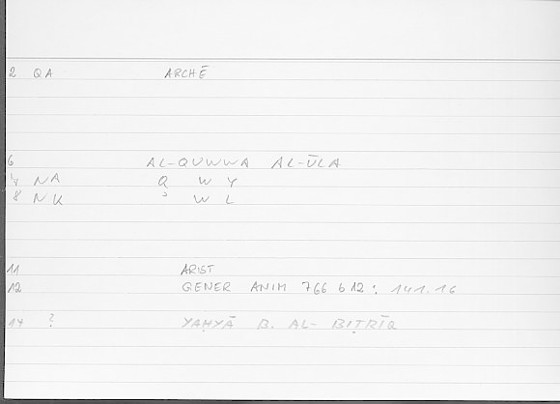 2 QA ARCHĒ
6 AL-QUWWA AL-ŪLA
7 NA Q W Y
8 NK ʾ W L
11 ARIST
12 GENER ANIM 766 b 12 : 141.16
14 ? YAḤYĀ B. AL-BIṬRĪQ